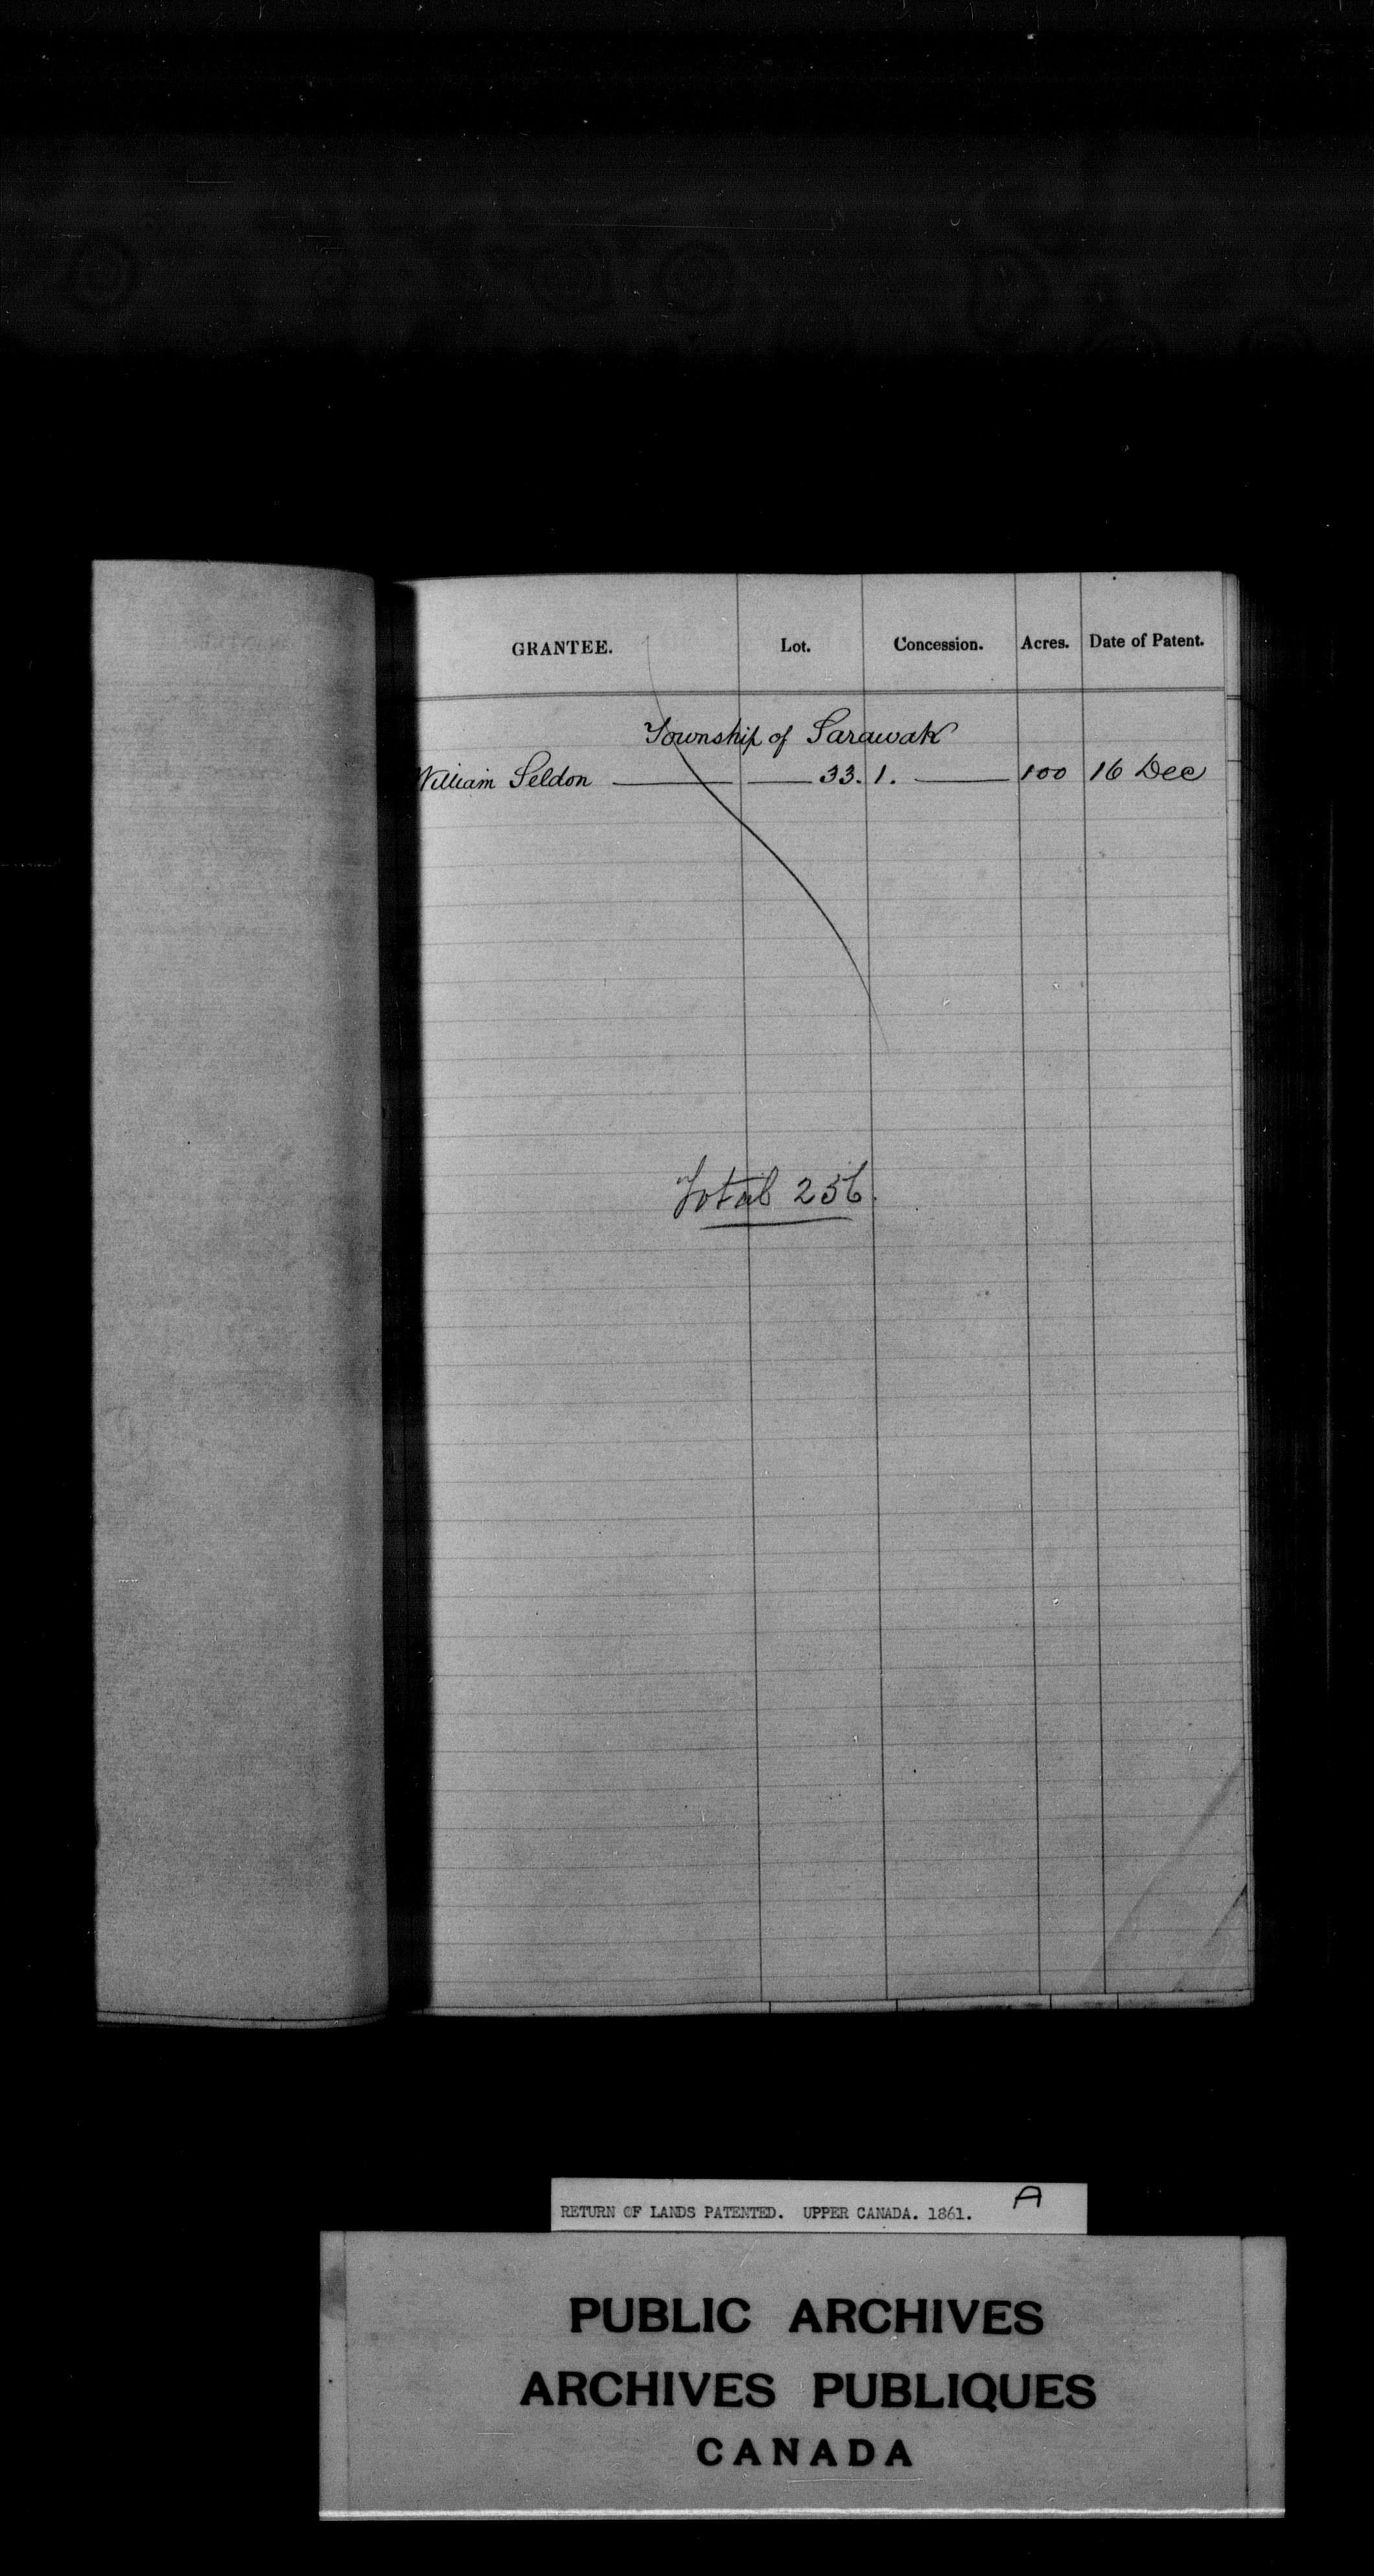 GRANTEE. Lot. Concession. Acres. Date of Patent.
Township of Sarawak
William Seldon 33. 1. 100 16 Dec
Total 256.
RETURN OF LANDS PATENTED. UPPER CANADA. 1861. A
PUBLIC ARCHIVES
ARCHIVES PUBLIQUES
CANADA